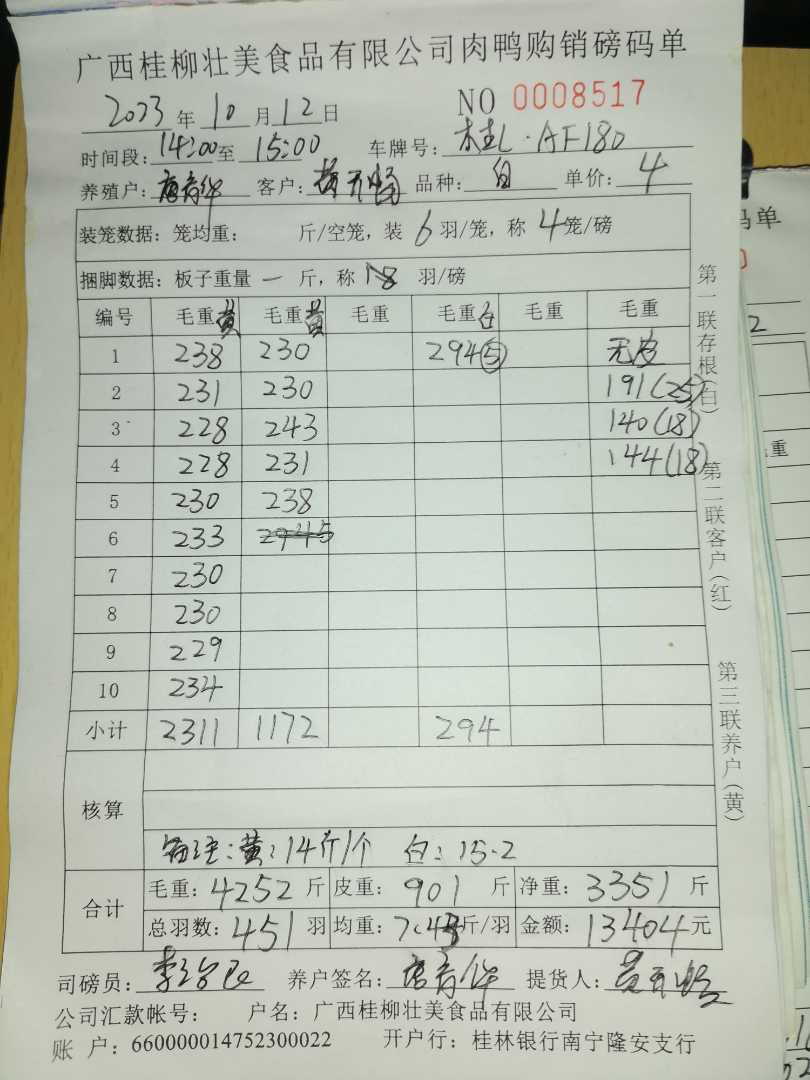 广西桂柳壮美食品有限公司肉鸭购销磅码单
2023年10月12日 NO 0008517
时间段: 14:00至 15:00 车牌号: 桂L·AF180
养殖户: 客户: 品种: 白 单价: 4
装笼数据: 笼均重: 斤/空笼, 装6羽/笼, 称4笼/磅
捆脚数据: 板子重量 一 斤, 称18羽/磅
编号 毛重黄 毛重黄 毛重 毛重白 毛重 毛重
1 238 230 294⑤ 无皮
2 231 230 191(25)
3 228 243 140(18)
4 228 231 144(18)
5 230 238
6 233 2945
7 230
8 230
9 229
10 234
小计 2311 1172 294
核算
备注: 黄: 14斤/个 白: 15.2
合计 毛重: 4252斤 皮重: 901斤 净重: 3351斤
总羽数: 451羽 均重: 7.43斤/羽 金额: 13404元
司磅员: 养户签名: 提货人:
公司汇款帐号: 户名: 广西桂柳壮美食品有限公司
账 户: 660000014752300022 开户行: 桂林银行南宁隆安支行
第一联存根(白)
第二联客户(红)
第三联养户(黄)
码单
0
2
重